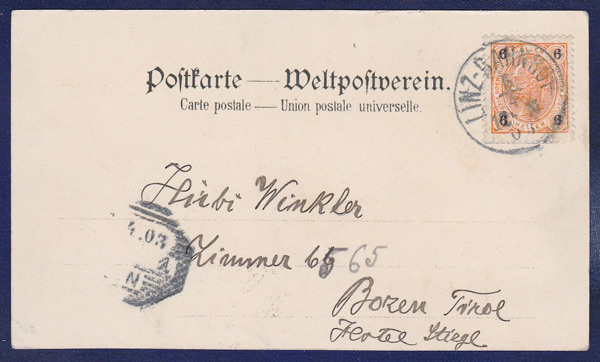 Postkarte — Weltpostverein.
Carte postale — Union postale universelle.
6 6
6 6
LINZ-BAHNHOF
Hubi Winkler
4.03
Zimmer 65 565
N
Bozen Tirol
Hotel Stiegl